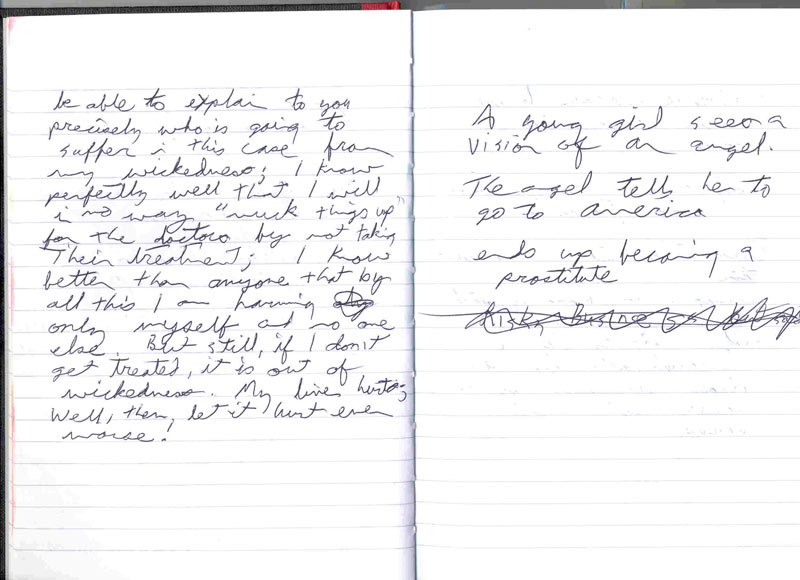 be able to explain to you
precisely who is going to
suffer in this case from
my wickedness; I know
perfectly well that I will
in no way "muck things up"
for the doctors by not taking
Their treatment; I know
better than anyone that by
all this I am harming
only myself and no one
else. But still, if I don't
get treated, it is out of
wickedness. My liver hurts;
Well, then, let it hurt even
worse!
A young girl sees a
vision of an angel.
The angel tells her to
go to america
ends up becoming a
prostitute
Risky Business